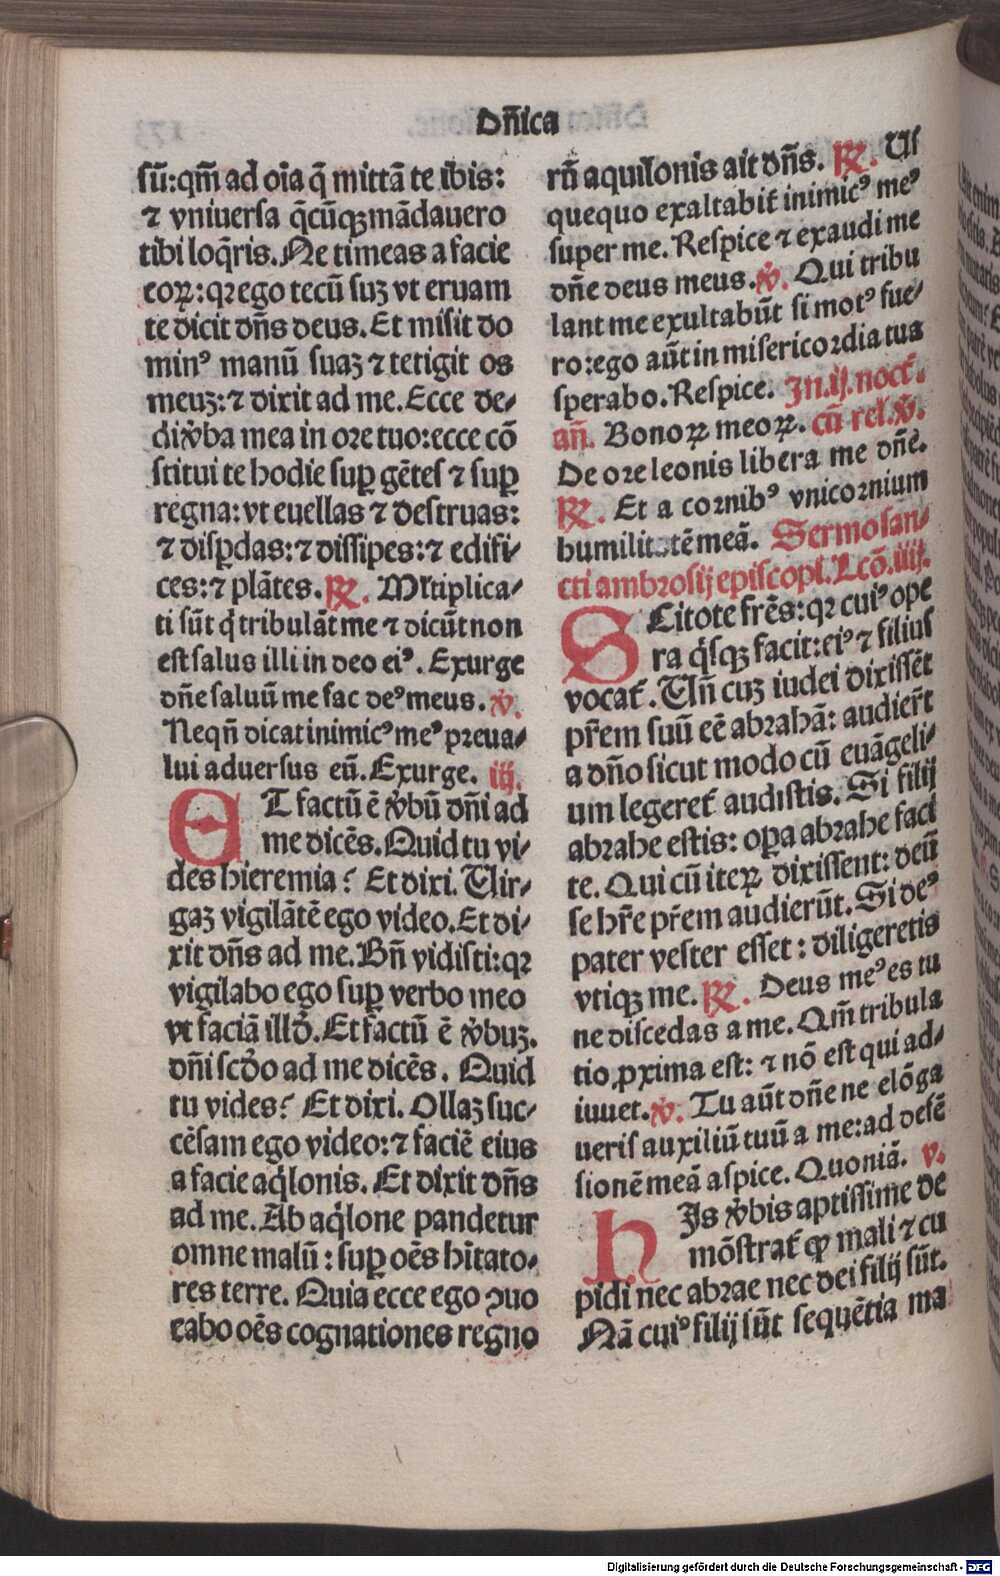 Dñica
sũ: qm̃ ad oĩa q̃ mittã te ibis:
⁊ vniuersa q̃cũqꝫ mãdauero
tibi loq̃ris. Ne timeas a facie
eoꝝ: qꝛ ego tecũ suꝫ vt eruam
te dicit dñs deus. Et misit do
minꝰ manũ suaꝫ ⁊ tetigit os
meuꝫ: ⁊ dixit ad me. Ecce de-
di v̾ba mea in ore tuo: ecce cõ
stitui te hodie suꝑ gẽtes ⁊ suꝑ
regna: vt euellas ⁊ destruas:
⁊ disꝑdas: ⁊ dissipes: ⁊ edifi-
ces: ⁊ plãtes. ℞. Mltiplica-
ti sũt q̇ tribulãt me ⁊ dicũt non
est salus illi in deo eiꝰ. Exurge
dñe saluũ me fac deꝰ meus. ℣.
Neqñ dicat inimicꝰ meꝰ preua-
lui aduersus eũ. Exurge. iij.
ET factũ ẽ v̾bũ dñi ad
me dicẽs. Quid tu vi-
des hieremia? Et dixi. Uir-
gaꝫ vigilãtẽ ego video. Et di-
xit dñs ad me. Bñ vidisti: qꝛ
vigilabo ego suꝑ verbo meo
vt faciã illđ. Et factũ ẽ v̾buꝫ.
dñi scđo ad me dicẽs. Quid
tu vides? Et dixi. Ollaꝫ suc-
cẽsam ego video: ⁊ faciẽ eius
a facie aq̇lonis. Et dixit dñs
ad me. Ab aq̇lone pandetur
omne malũ: suꝑ oẽs hĩtato-
res terre. Quia ecce ego ꝯuo
cabo oẽs cognationes regno
rũ aquilonis ait dñs. ℞. Us
quequo exaltabit̾ inimicꝰ meꝰ
super me. Respice ⁊ exaudi me
dñe deus meus. ℣. Qui tribu
lant me exultabũt si motꝰ fue-
ro: ego aũt in misericordia tua
sperabo. Respice. In .ij. noct̾.
añ. Bonoꝝ meoꝝ. cũ rel. ℣.
De ore leonis libera me dñe.
℞. Et a cornibꝰ vnicornium
humilit tẽ meã. Sermo san-
cti ambrosij episcopi. Lcõ. iiij.
SCitote frẽs: qꝛ cuiꝰ ope
ra q̇sqꝫ facit: eiꝰ ⁊ filius
vocat̾. Uñ cuꝫ iudei dixissẽt
pr̃em suũ eẽ abrahã: audier̃t
a dño sicut modo cũ euãgeli-
um legeret̾ audistis. Si filij
abrahe estis: oꝑa abrahe faci
te. Qui cũ iteꝝ dixissent: deũ
se hr̃e pr̃em audierũt. Si deꝰ
pater vester esset: diligeretis
vtiqꝫ me. ℞. Deus meꝰ es tu
ne discedas a me. Qm̃ tribula
tio ꝓxima est: ⁊ nõ est qui ad-
iuuet. ℣. Tu aũt dñe ne elõga
ueris auxiliũ tuũ a me: ad defẽ
sionẽ meã aspice. Quoniã. v.
HIs v̾bis aptissime de
mõstrat̾ ꝙ mali ⁊ cu
pidi nec abrae nec dei filij sũt.
Nã cuiꝰ filij sũt sequẽtia ma
Digitalisierung gefördert durch die Deutsche Forschungsgemeinschaft - DFG